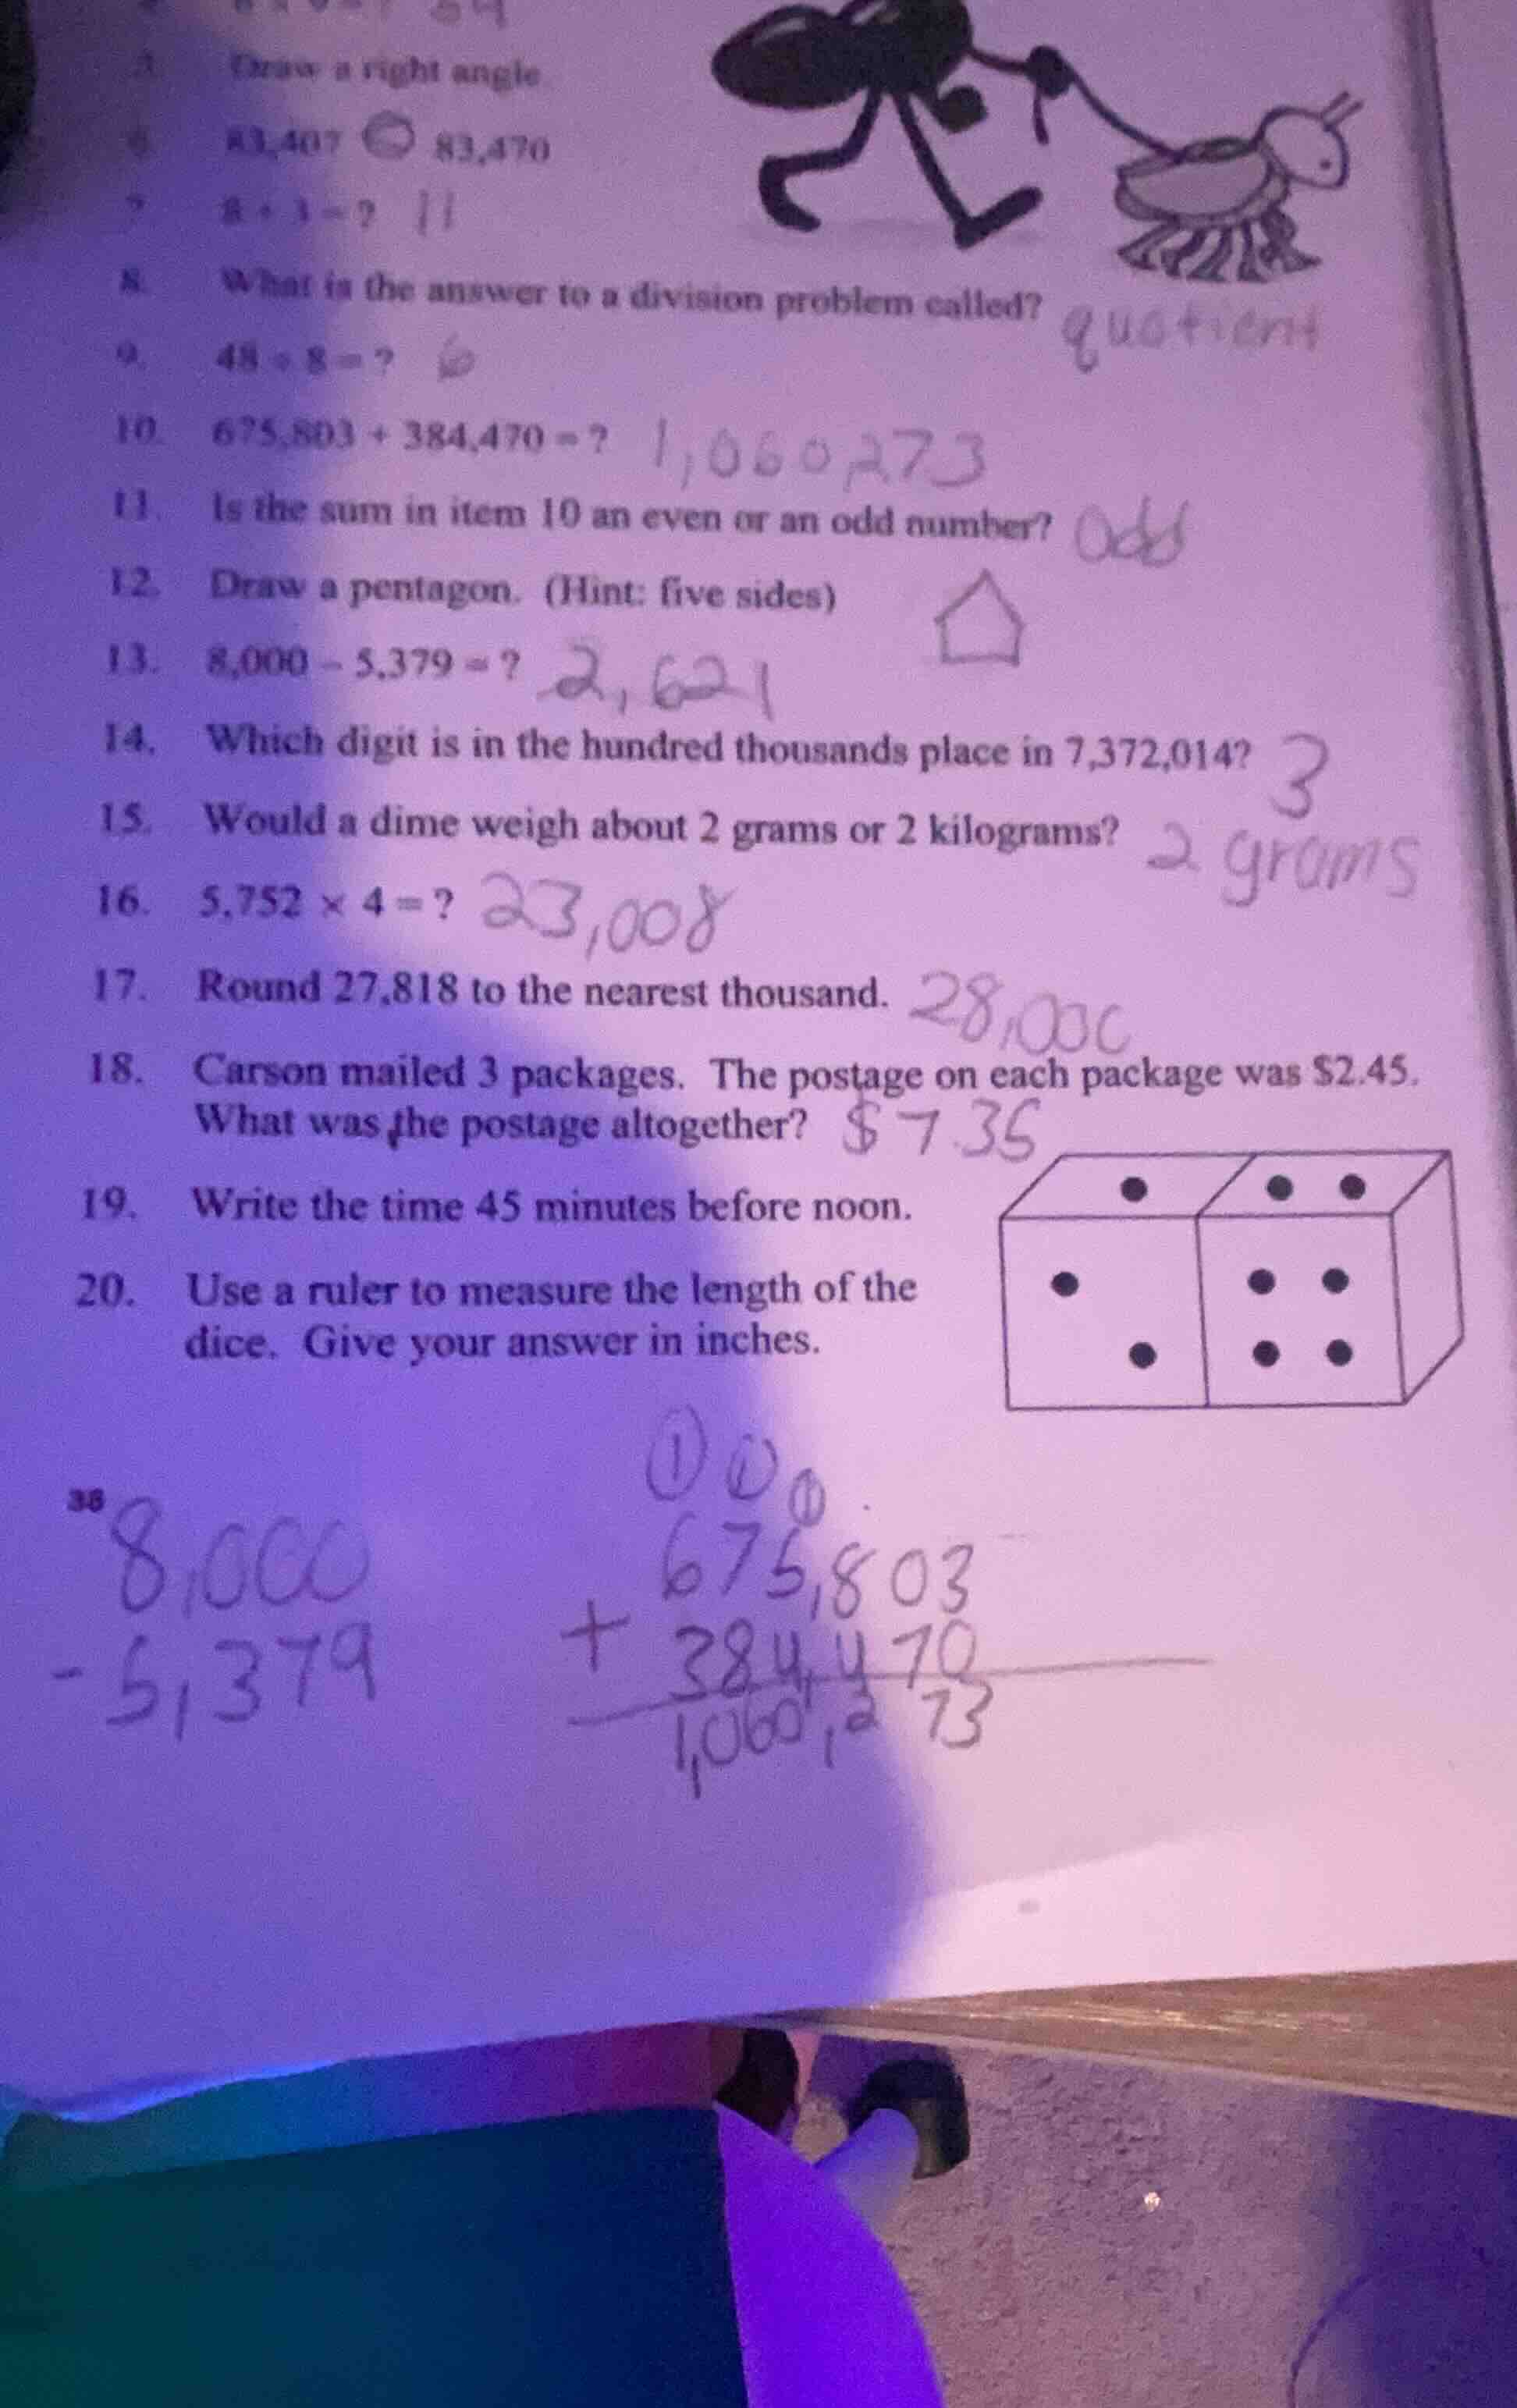 Draw a right angle.
6. 83,407 83,470
7. 8 + 3 = ? 11
8. What is the answer to a division problem called? quotient
9. 48 ÷ 8 = ? 6
10. 675,803 + 384,470 = ? 1,060,273
11. Is the sum in item 10 an even or an odd number? Odd
12. Draw a pentagon. (Hint: five sides)
13. 8,000 – 5,379 = ? 2,621
14. Which digit is in the hundred thousands place in 7,372,014? 3
15. Would a dime weigh about 2 grams or 2 kilograms? 2 grams
16. 5,752 × 4 = ? 23,008
17. Round 27,818 to the nearest thousand. 28,000
18. Carson mailed 3 packages. The postage on each package was $2.45.
What was the postage altogether? $7.35
19. Write the time 45 minutes before noon.
20. Use a ruler to measure the length of the
dice. Give your answer in inches.
1 1 1
38
8,000 675,803
- 5,379 + 384,470
1,060,273